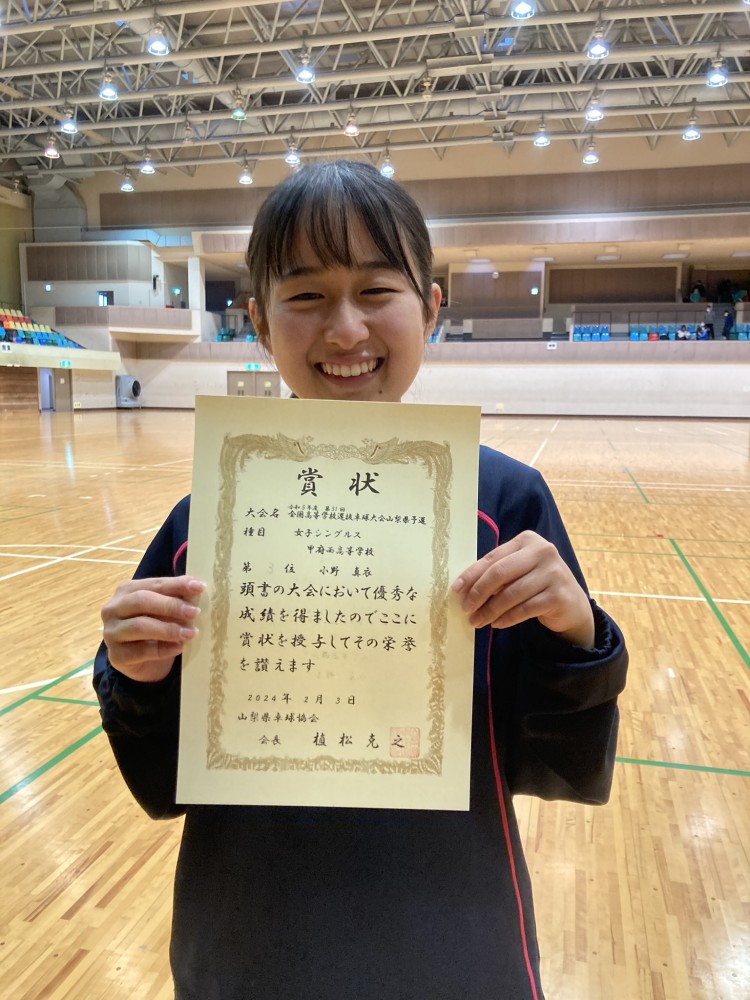 賞状
大会名 令和5年度 第51回
全国高等学校選抜卓球大会山梨県予選
種目 女子シングルス
甲府西高等学校
第 3 位 小野 真衣
頭書の大会において優秀な
成績を得ましたのでここに
賞状を授与してその栄誉
を讃えます
2024年 2月 3日
山梨県卓球協会
会長 植松克之